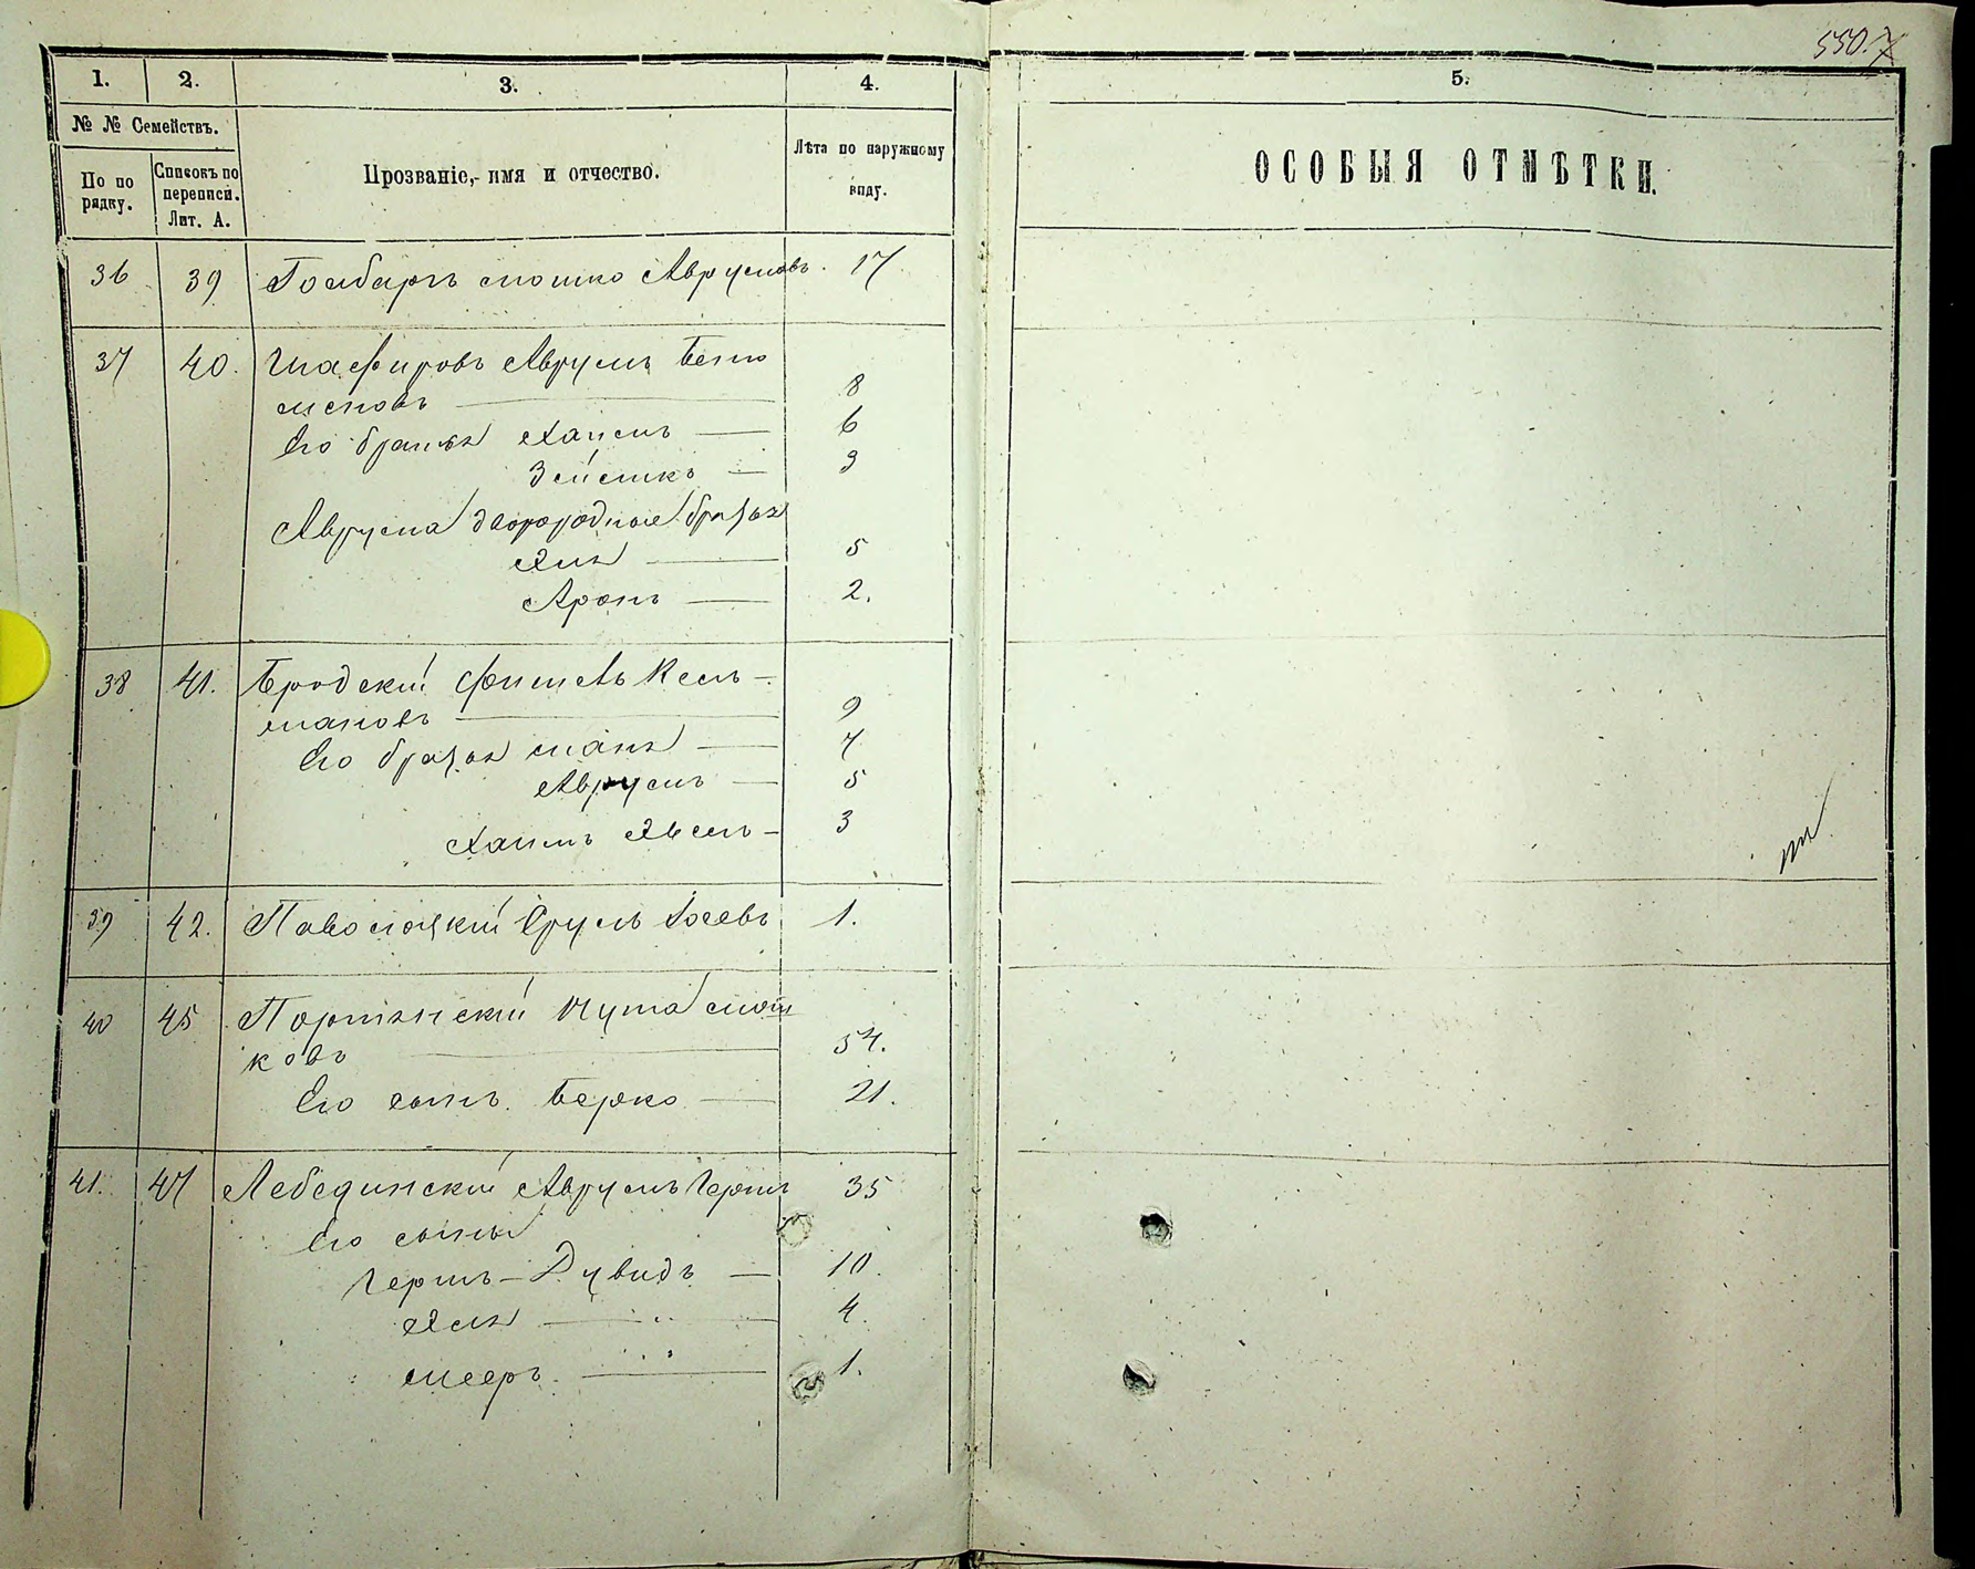 550. 7
1. 2. 3. 4. 5.
№ № Семействъ.
По по рядку.
Списокъ по переписи. Лит. А.
Прозваніе, имя и отчество.
Лѣта по наружному виду.
ОСОБЫЯ ОТМѢТКИ.
36 39 Гомбаргъ Мошко Аврумовъ. 17
37 40. Шафировъ Аврумъ Бенъ
меновъ — 8
Его братья Хаимъ — 6
Зейликъ — 3
Аврума двоюродные братья
Янк — 5
Аронъ — 2.
38 41. Бродскій Фишель Кель-
мановъ — 9
Его братья — 7
Аврумъ — 5
Хаимъ — 3
39 42. Паволоцкій Сруль Іосевъ 1.
40 45 Портянскій Нута Мош
ковъ — 54.
Его сынъ Берко — 21.
41. 47 Лебединскій Аврумъ Герш 35
Его сыны
Гершъ-Дувидъ — 10.
4.
Мееръ — 1.